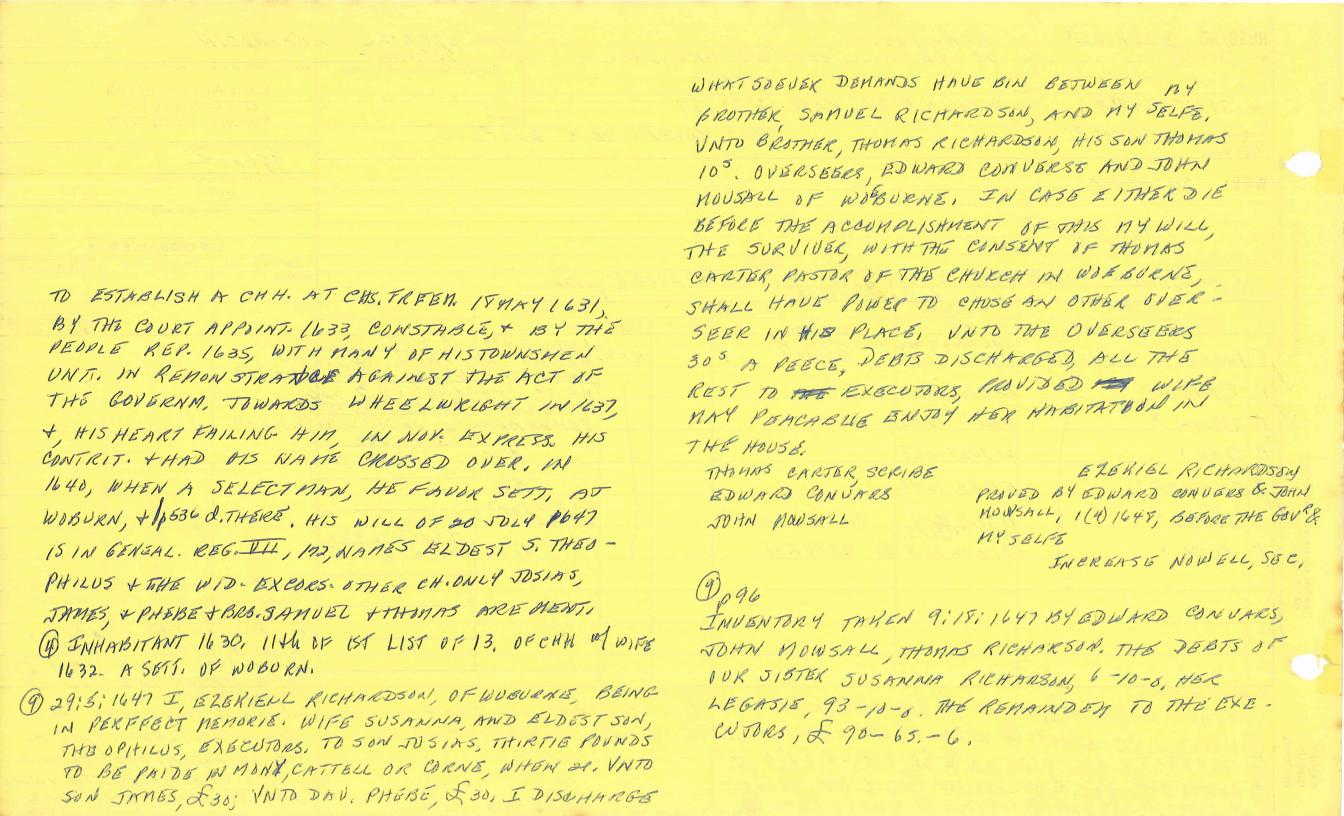 TO ESTABLISH A CHH. AT CHS. TREEM. 18 MAY 1631,
BY THE COURT APPOINT. 1633, CONSTABLE, & BY THE
PEOPLE REP. 1635, WITH MANY OF HIS TOWNSMEN
UNIT. IN REMONSTRANCE AGAINST THE ACT OF
THE GOVERNM. TOWARDS WHEELWRIGHT IN 1637,
&, HIS HEART FAILING HIM, IN NOV. EXPRESS. HIS
CONTRIT. & HAD HIS NAME CROSSED OVER. IN
1640, WHEN A SELECTMAN, HE FAVOR SETT. AT
WOBURN, & p536 d. THERE. HIS WILL OF 20 JULY 1647
IS IN GENEAL. REG. VII, 172, NAMES ELDEST S. THEO-
PHILUS & THE WID. EXCORS. OTHER CH. ONLY JOSIAS,
JAMES, & PHEBE & BRO. SAMUEL & THOMAS ARE MENT.
④ INHABITANT 1630. 11th OF 1ST LIST OF 13. OF CHH w/ WIFE
1632. A SETT. OF WOBURN.
⑨ 29:5:1647 I, EZEKIELL RICHARDSON, OF WOBURNE, BEING
IN PERFFECT MEMORIE. WIFE SUSANNA, AND ELDEST SON,
THEOPHILUS, EXECUTORS. TO SON JOSIAS, THIRTIE POUNDS
TO BE PAIDE IN MONY, CATTELL OR CORNE, WHEN 21. VNTO
SON JAMES, £30; VNTO DAU. PHEBE, £30. I DISCHARGE
WHATSOEVER DEMANDS HAVE BIN BETWEEN MY
BROTHER, SAMUEL RICHARDSON, AND MY SELFE.
VNTO BROTHER, THOMAS RICHARDSON, HIS SON THOMAS
10S. OVERSEERS, EDWARD CONVERSE AND JOHN
MOUSALL OF WOEBURNE. IN CASE EITHER DIE
BEFORE THE ACCOMPLISHMENT OF THIS MY WILL,
THE SURVIVER, WITH THE CONSENT OF THOMAS
CARTER, PASTOR OF THE CHURCH IN WOEBURNE,
SHALL HAVE POWER TO CHUSE AN OTHER OVER-
SEER IN HIS PLACE. VNTO THE OVERSEERS
30S A PEECE, DEBTS DISCHARGED, ALL THE
REST TO EXECUTORS, PROVIDED WIFE
MAY PEACABLE ENJOY HER HABITATION IN
THE HOUSE.
THOMAS CARTER, SCRIBE
EDWARD CONVARS
JOHN MOUSALL
EZEKIEL RICHARDSON
PROVED BY EDWARD CONVERS & JOHN
MOWSALL, 1(4)1648, BEFORE THE GOVR &
MY SELFE
INCREASE NOWELL, SEC.
⑨ p96
INVENTORY TAKEN 9:18:1647 BY EDWARD CONVARS,
JOHN MOWSALL, THOMAS RICHARSON. THE DEBTS OF
OUR SISTER SUSANNA RICHARSON, 6-10-0. HER
LEGASIE, 93-10-0. THE REMAINDER TO THE EXE-
CUTORS, £ 90-65.-6.